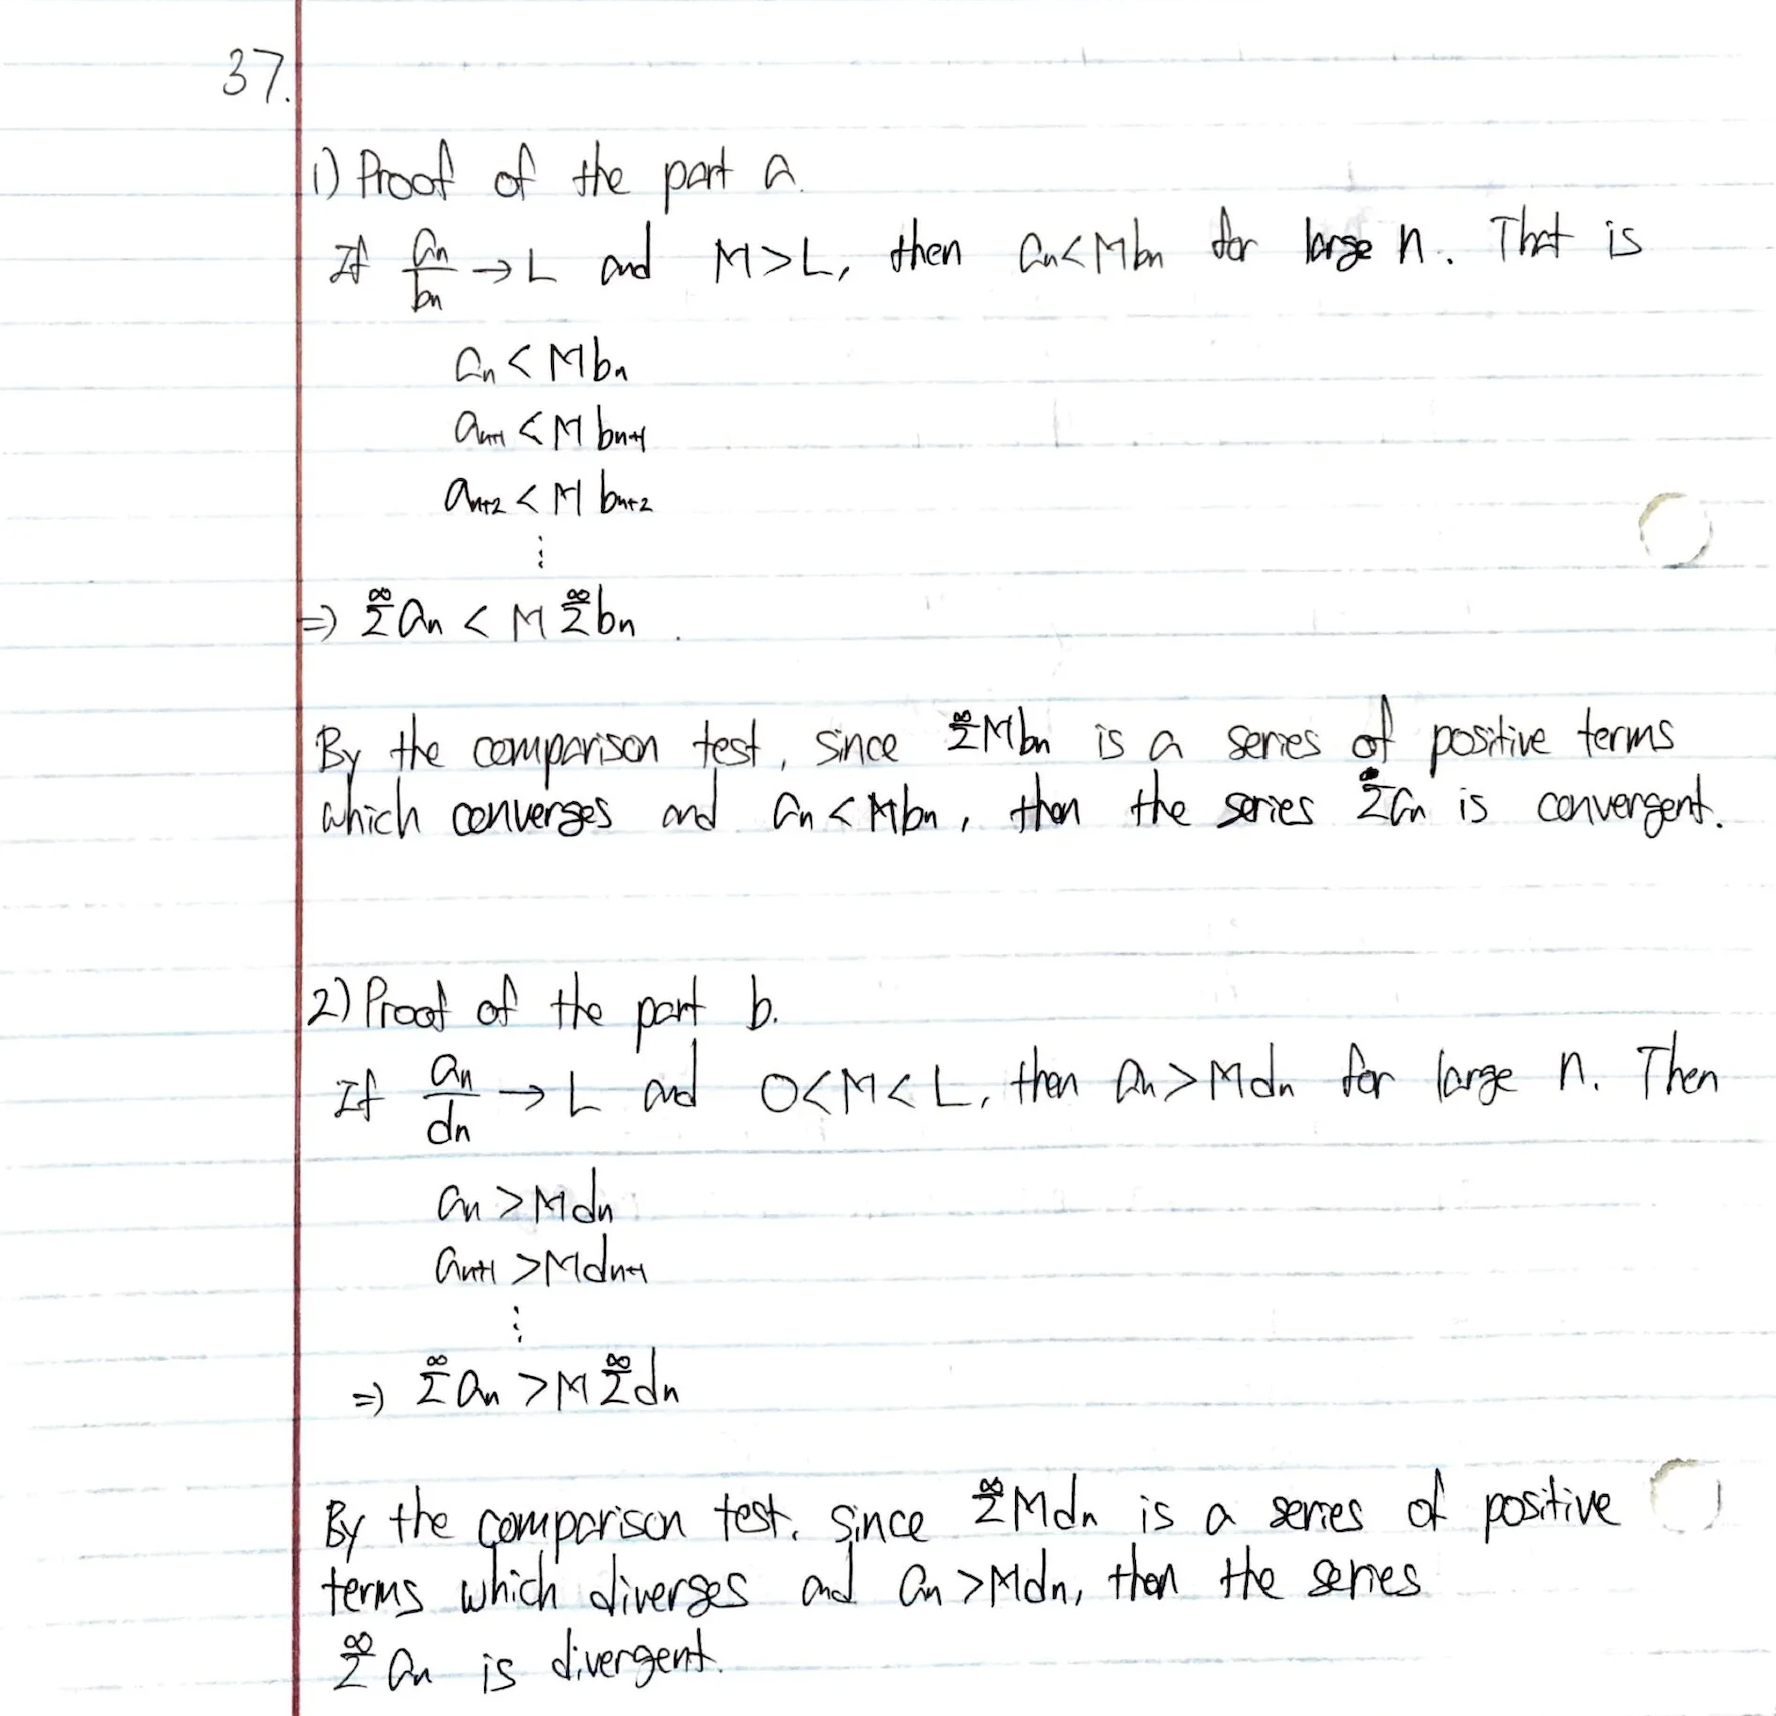 37.
1) Proof of the part a.
If an/bn → L and M > L, then an < Mbn for large n. That is
an < Mbn
an+1 < Mbn+1
an+2 < Mbn+2
⋮
⇒ ∑^∞ an < M ∑^∞ bn .
By the comparison test, since ∑^∞ Mbn is a series of positive terms
which converges and an < Mbn, then the series ∑^∞ an is convergent.
2) Proof of the part b.
If an/dn → L and 0 < M < L, then an > Mdn for large n. Then
an > Mdn
an+1 > Mdn+1
⋮
⇒ ∑^∞ an > M ∑^∞ dn
By the comparison test, since ∑^∞ Mdn is a series of positive
terms which diverges and an > Mdn, then the series
∑^∞ an is divergent.